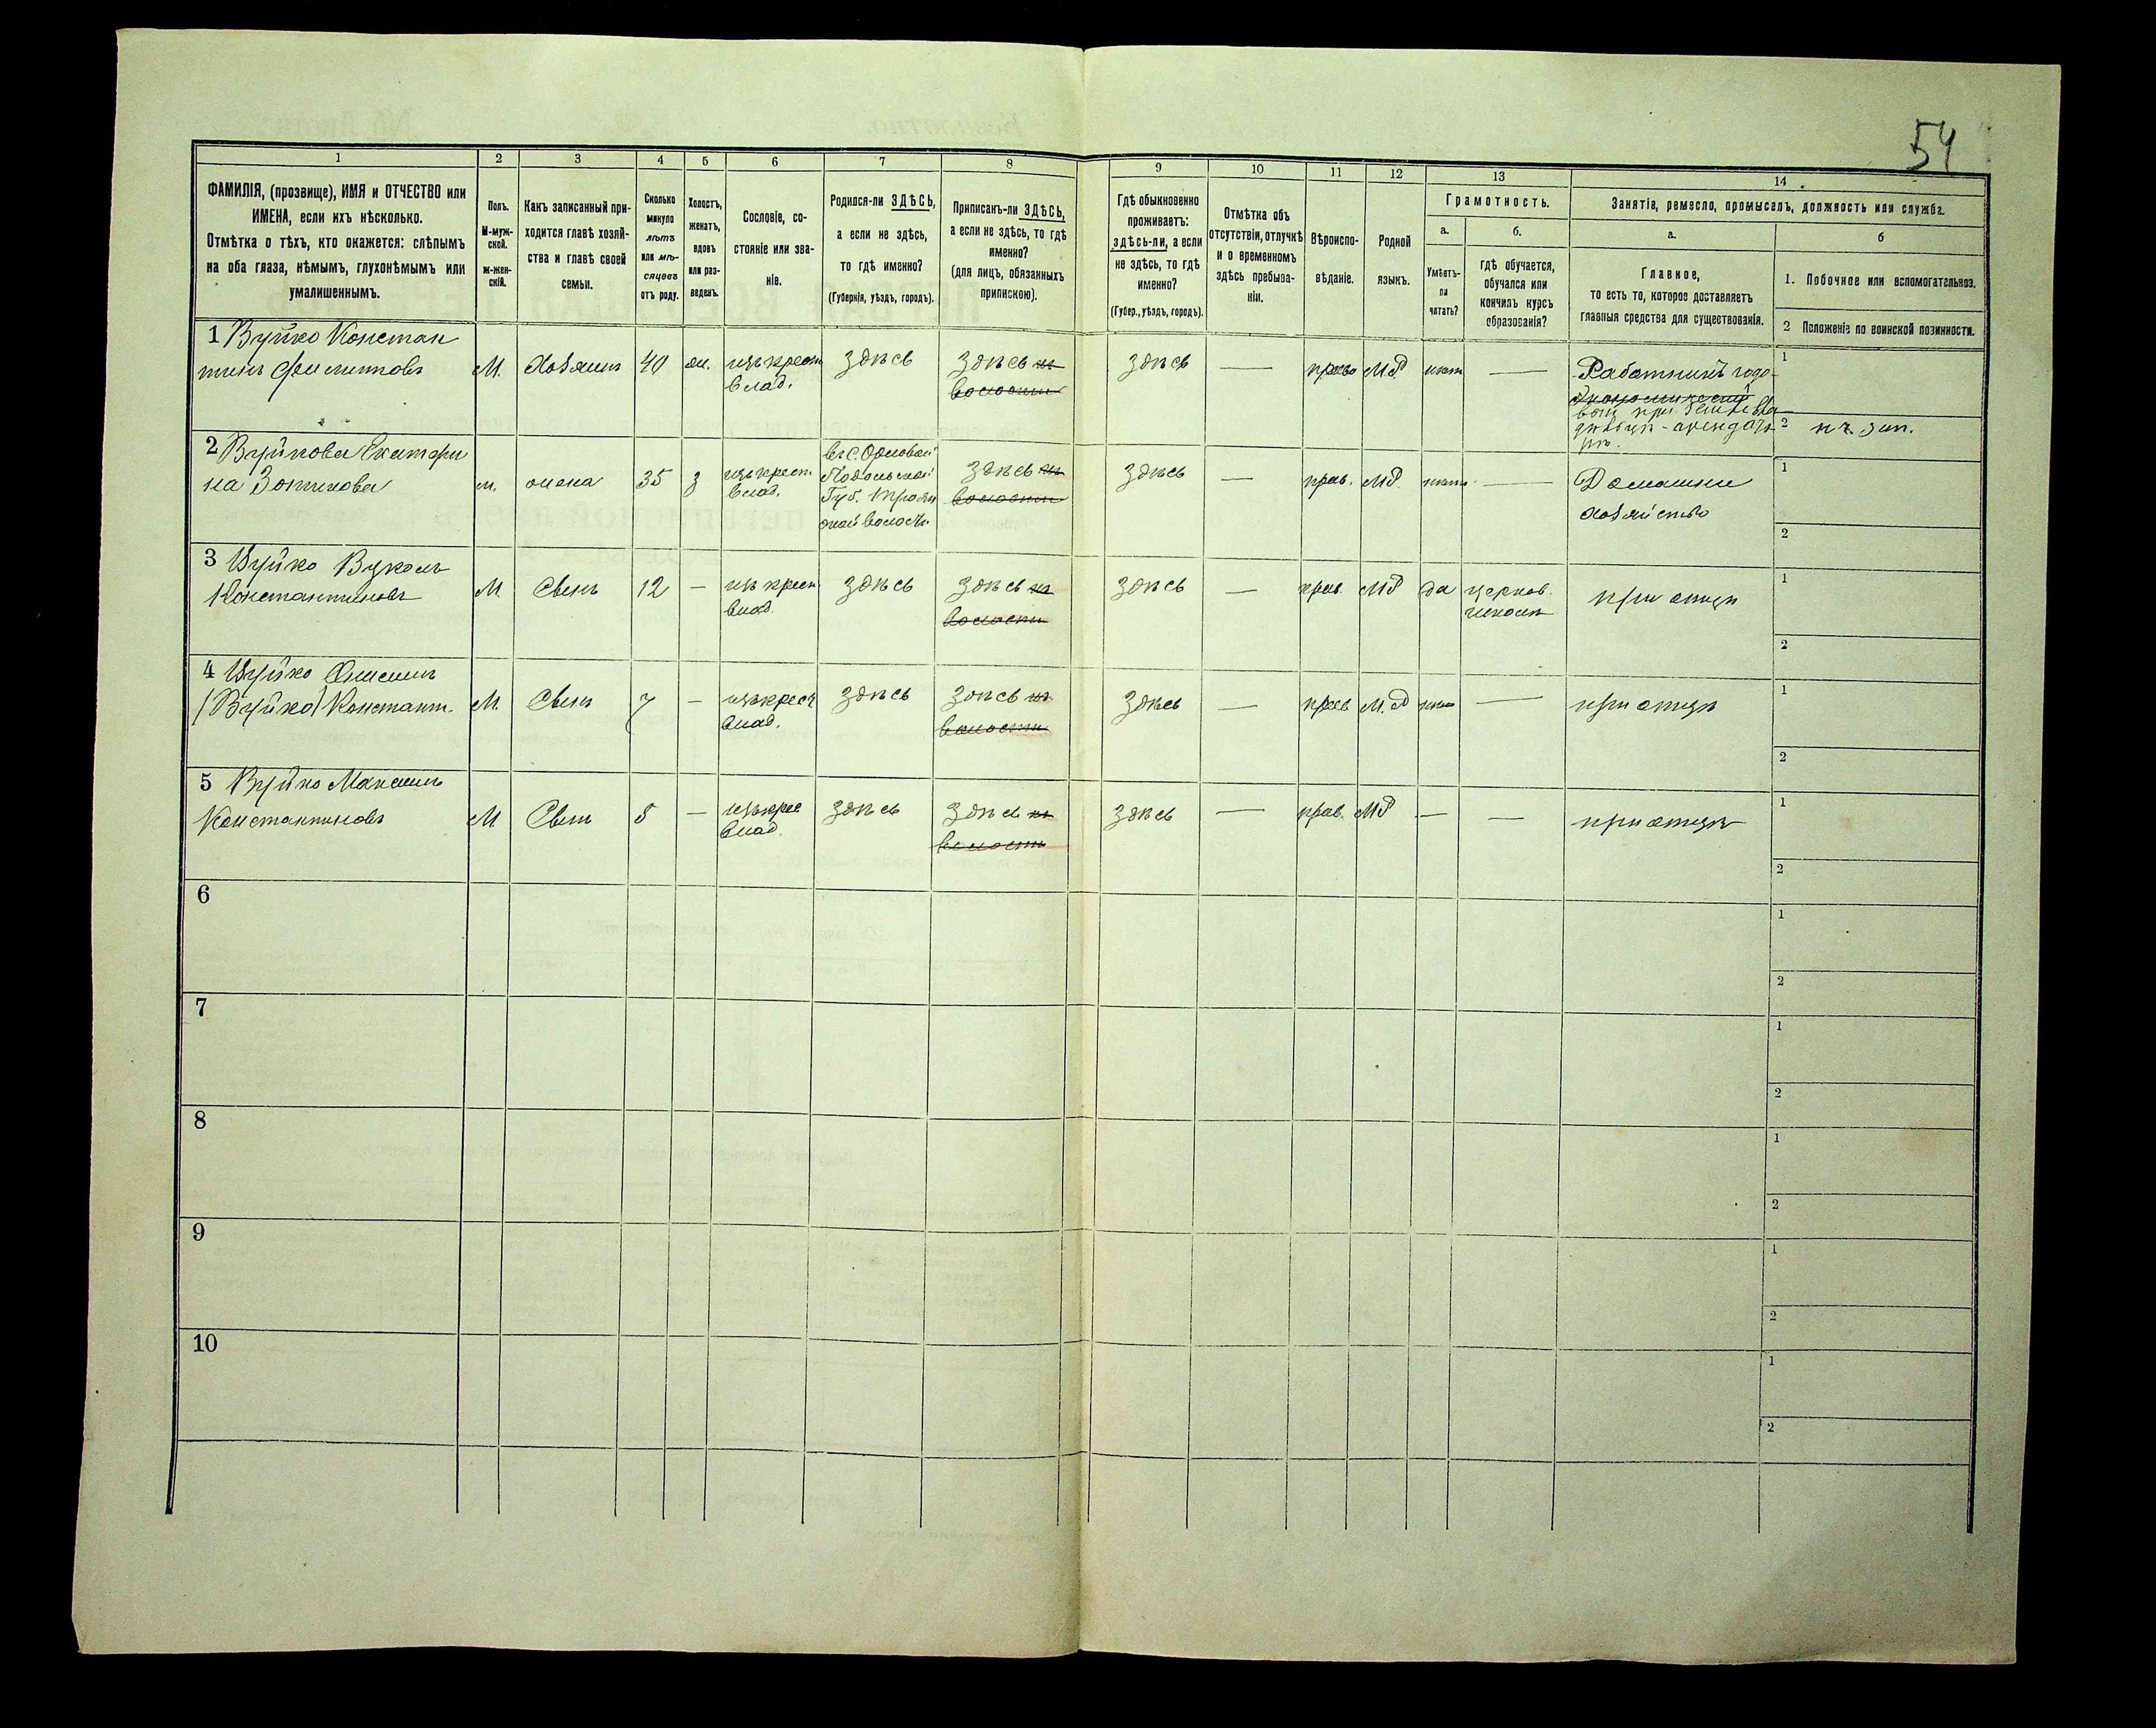 54
1
2
3
4
5
6
7
8
9
10
11
12
13
14
ФАМИЛІЯ, (прозвище), ИМЯ и ОТЧЕСТВО или
ИМЕНА, если ихъ нѣсколько.
Отмѣтка о тѣхъ, кто окажется: слѣпымъ
на оба глаза, нѣмымъ, глухонѣмымъ или
умалишеннымъ.
Полъ.
М-муж-
ской.
ж-жен-
скій.
Какъ записанный при-
ходится главѣ хозяй-
ства и главѣ своей
семьи.
Сколько
минуло
лѣтъ
или мѣ-
сяцевъ
отъ роду.
Холостъ,
женатъ,
вдовъ
или раз-
веденъ.
Сословіе, со-
стояніе или зва-
ніе.
Родился-ли ЗДѢСЬ,
а если не здѣсь,
то гдѣ именно?
(Губернія, уѣздъ, городъ).
Приписанъ-ли ЗДѢСЬ,
а если не здѣсь, то гдѣ
именно?
(для лицъ, обязанныхъ
припискою).
Гдѣ обыкновенно
проживаетъ:
здѣсь-ли, а если
не здѣсь, то гдѣ
именно?
(Губер., уѣздъ, городъ).
Отмѣтка объ
отсутствіи, отлучкѣ
и о временномъ
здѣсь пребыва-
ніи.
Вѣроиспо-
вѣданіе.
Родной
языкъ.
Грамотность.
а.
Умѣетъ-
ли
читать?
б.
гдѣ обучается,
обучался или
кончилъ курсъ
образованія?
Занятіе, ремесло, промыселъ, должность или служба.
а.
Главное,
то есть то, которое доставляетъ
главныя средства для существованія.
б
1. Побочное или вспомогательное.
2 Положеніе по воинской повинности.
1 Вуйко Констан
тинъ Филипповъ
М.
Хозяинъ
40
ж.
изъ крест
влад.
здѣсь
здѣсь въ
волости
здѣсь
—
прав
М.Р.
нѣтъ
—
Работникъ годо-
1
2 н. ч. зап.
2 Вуйкова Екатери
на
ж.
жена
35
з
изъ крест.
влад.
въ с. Орловой
Подольской
Губ.
ской волости
здѣсь въ
волости
здѣсь
—
прав.
МР
нѣтъ
—
Домашнее
хозяйство
1
2
3 Вуйко Вуколъ
Константиновъ
М
Сынъ
12
—
изъ крест
влад.
здѣсь
здѣсь въ
волости
здѣсь
—
прав.
МР
да
церков.
школѣ
при отцѣ
1
2
4 Вуйко
(Вуйко) Констант.
М.
Сынъ
7
—
изъ крест
влад.
здѣсь
здѣсь въ
волости
здѣсь
—
прав
М.Р
нѣтъ
—
при отцѣ
1
2
5 Вуйко Максимъ
Константиновъ
М
Сынъ
5
—
изъ крес
влад.
здѣсь
здѣсь въ
волости
здѣсь
—
прав.
МР
—
—
при отцѣ
1
2
6
1
2
7
1
2
8
1
2
9
1
2
10
1
2